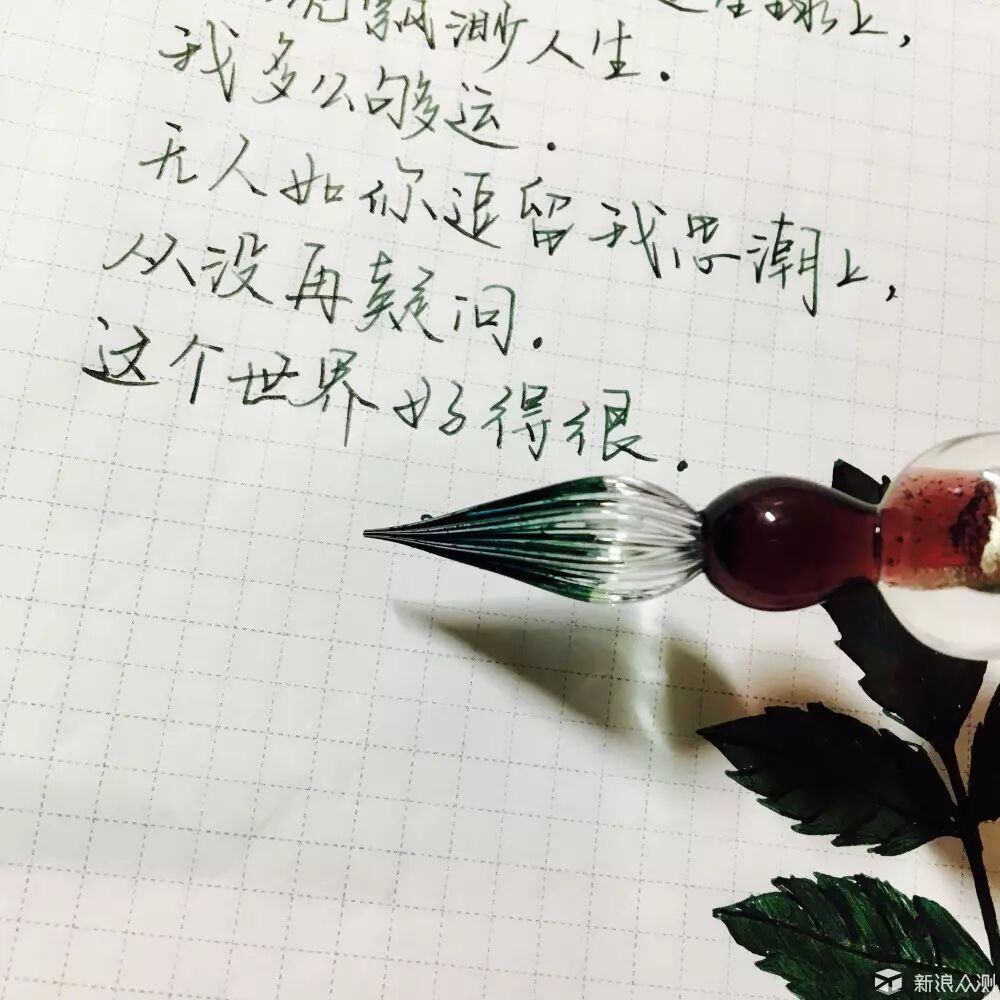 星球上,
飘渺人生.
我多么够运.
无人如你逗留我思潮上,
从没再疑问.
这个世界好得很.
新浪众测